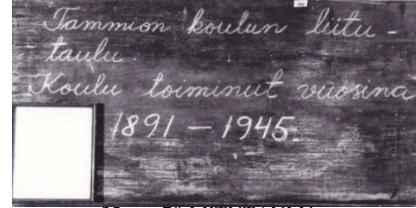 Tammion koulun liitu-
taulu.
Koulu toiminut vuosina
1891 – 1945.